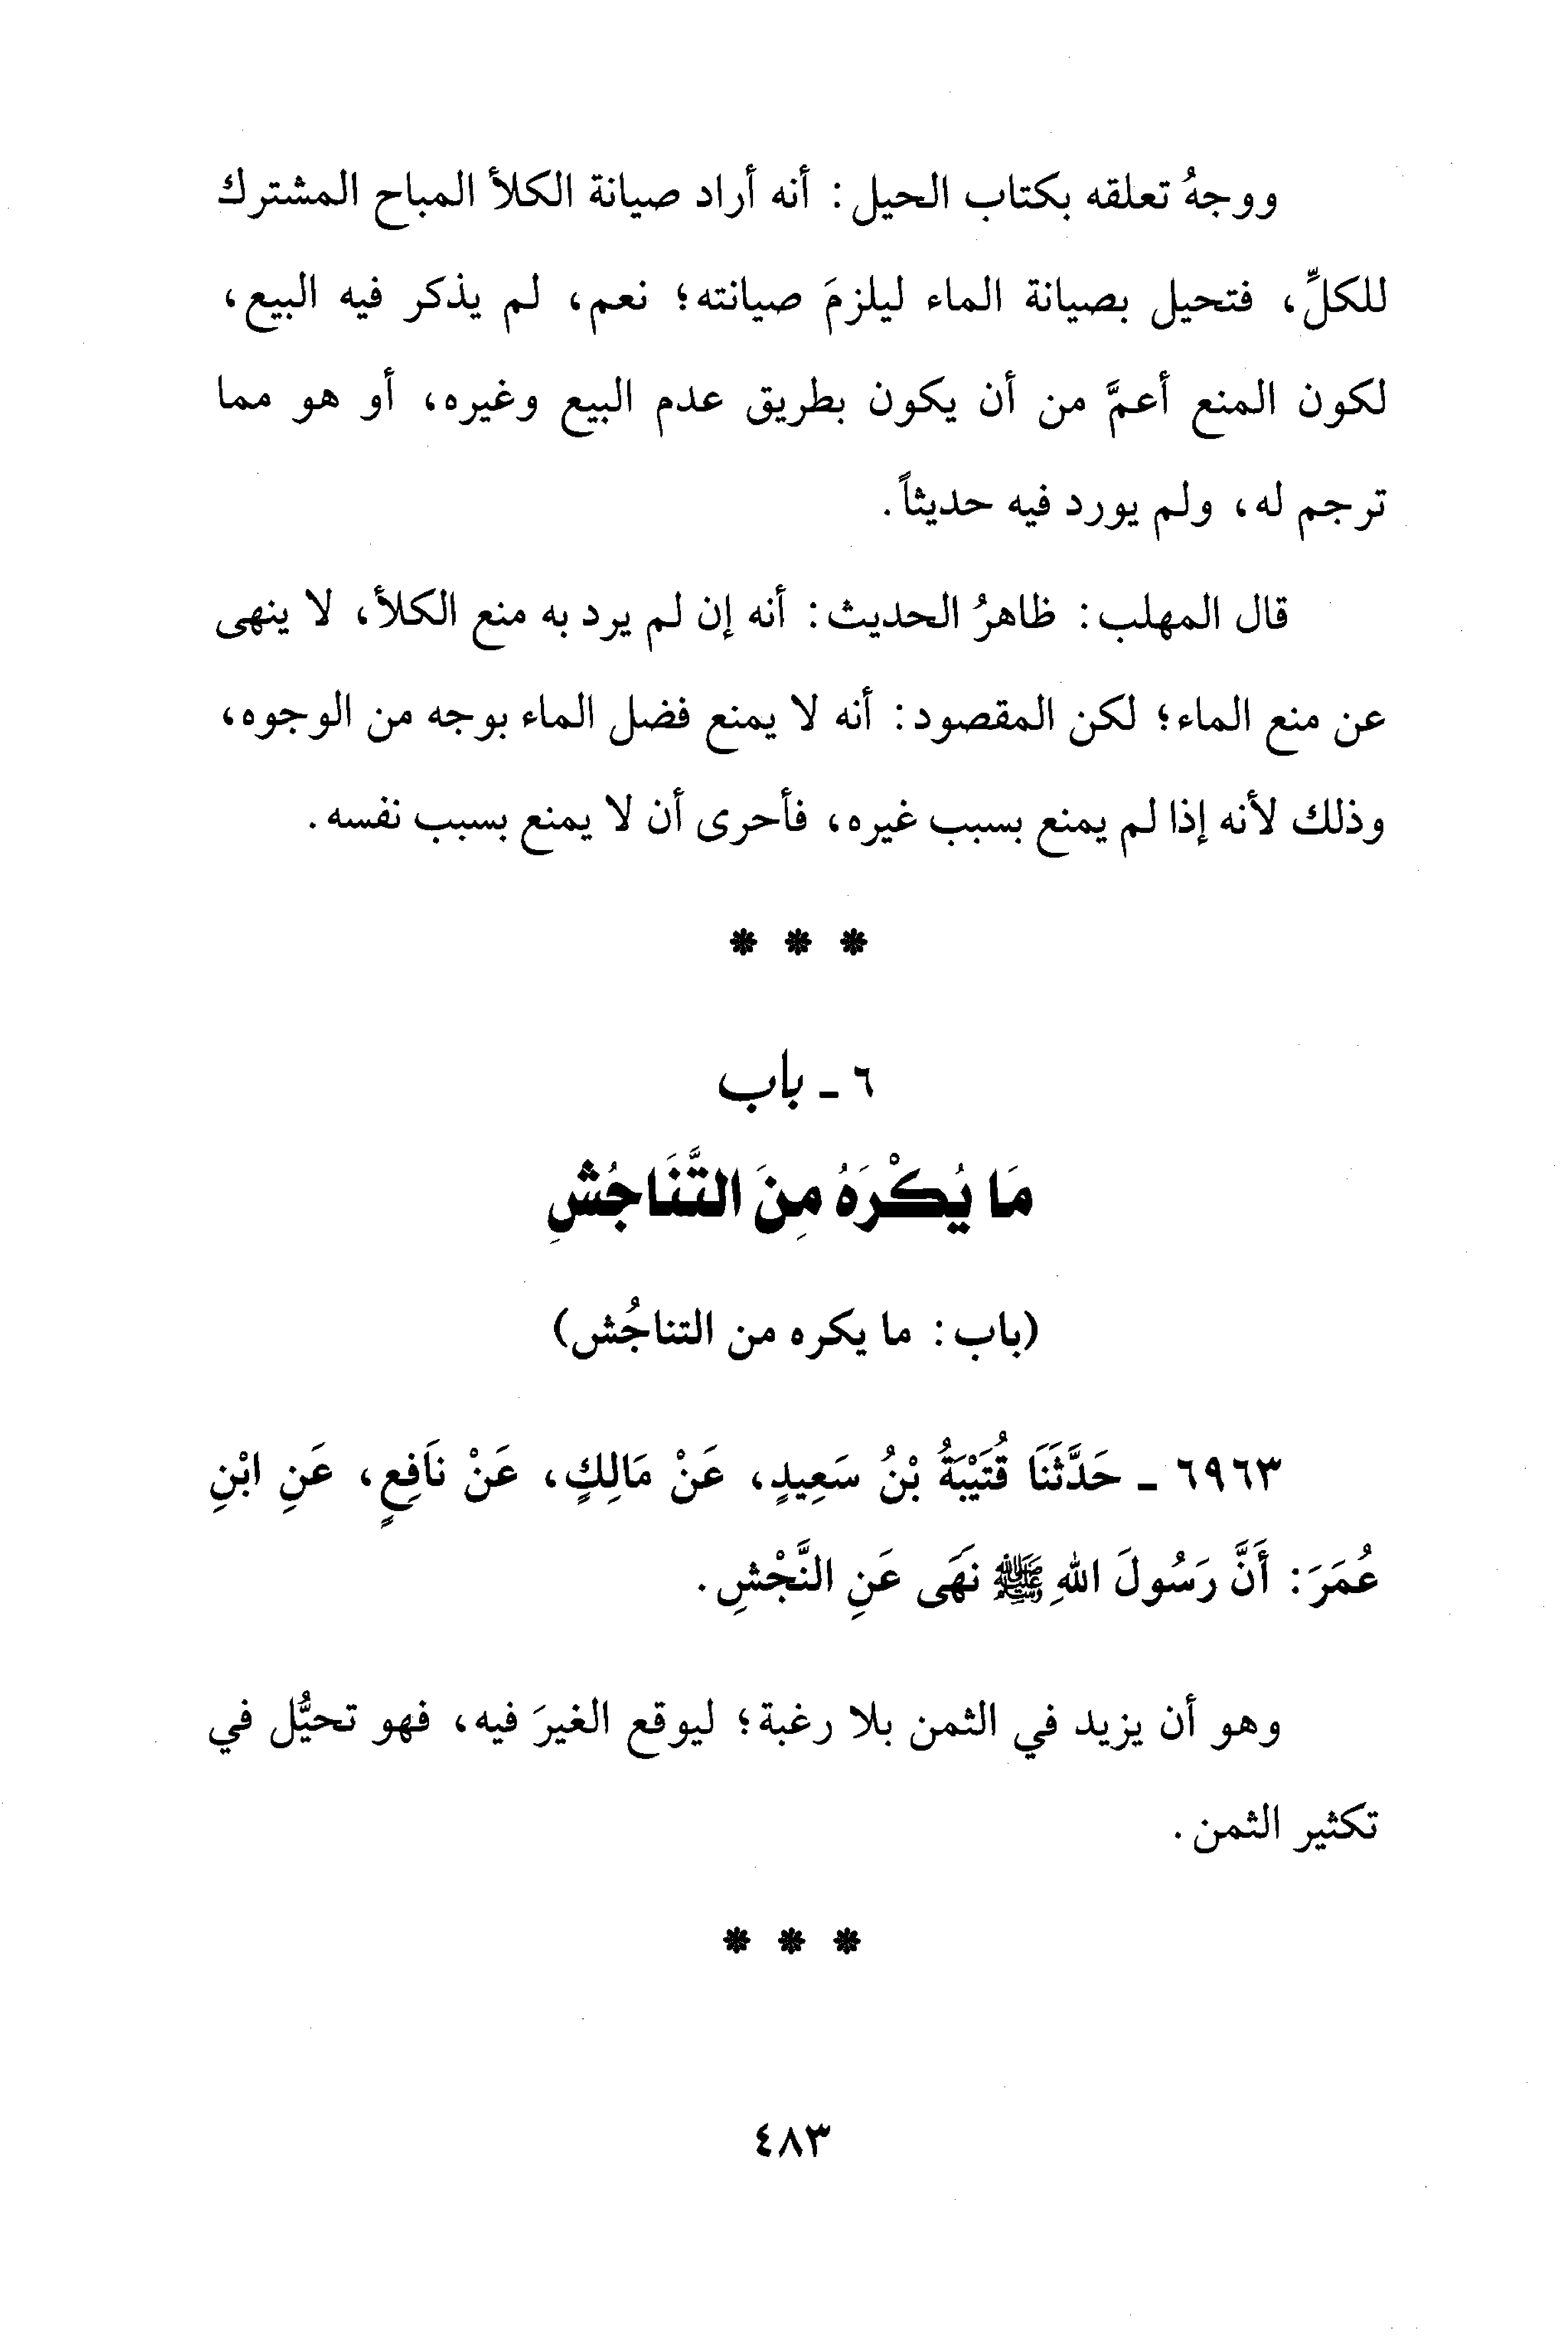 ووجهُ تعلقه بكتاب الحيل: أنه أراد صيانة الكلأ المباح المشترك
للكلِّ، فتحيل بصيانة الماء ليلزمَ صيانته؛ نعم، لم يذكر فيه البيع،
لكون المنع أعمَّ من أن يكون بطريق عدم البيع وغيره، أو هو مما
ترجم له، ولم يورد فيه حديثاً.
قال المهلب: ظاهرُ الحديث: أنه إن لم يرد به منع الكلأ، لا ينهى
عن منع الماء؛ لكن المقصود: أنه لا يمنع فضل الماء بوجه من الوجوه،
وذلك لأنه إذا لم يمنع بسبب غيره، فأحرى أن لا يمنع بسبب نفسه.
* * *
٦ - باب
مَا يُكْرَهُ مِنَ التَّنَاجُشِ
(باب: ما يكره من التناجُش)
٦٩٦٣ - حَدَّثَنَا قُتَيْبَةُ بْنُ سَعِيدٍ، عَنْ مَالِكٍ، عَنْ نَافِعٍ، عَنِ ابْنِ
عُمَرَ: أَنَّ رَسُولَ اللهِ ﷺ نَهَى عَنِ النَّجْشِ.
وهو أن يزيد في الثمن بلا رغبة؛ ليوقع الغيرَ فيه، فهو تحيُّل في
تكثير الثمن.
* * *
٤٨٣